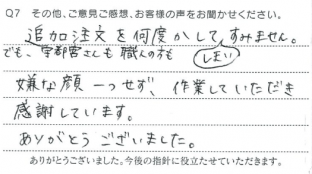 Q7 その他、ご意見ご感想、お客様の声をお聞かせください。
追加注文を何度かしてしまい、すみません。
でも、宇都宮さんも職人の方も
嫌な顔一つせず、作業していただき
感謝しています。
ありがとうございました。
ありがとうございました。今後の指針に役立たせていただきます。